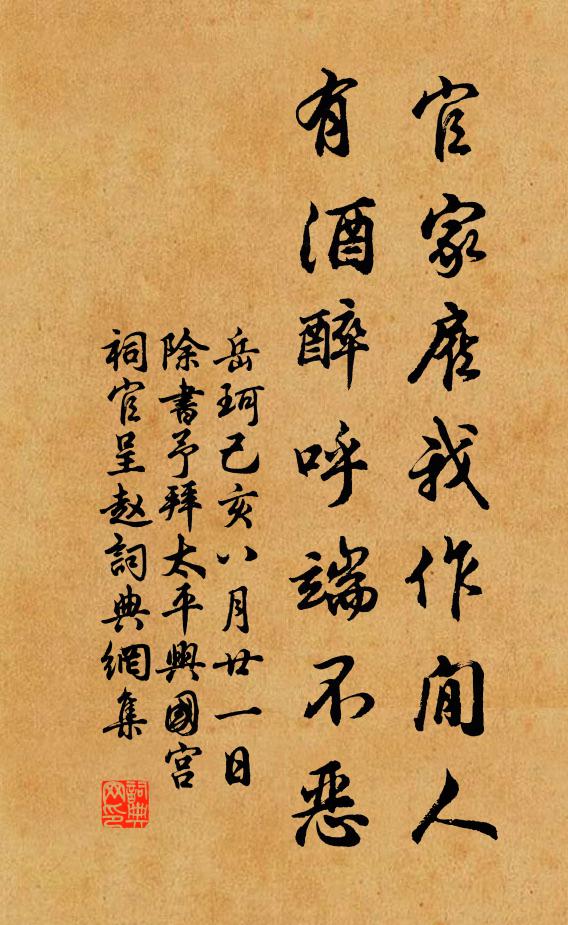 官家雇我作閒人
有酒醉呼端不惡
岳珂己亥八月廿一日
除書予拜太平興國宮
祠官呈赵詞典網集
詞典网印